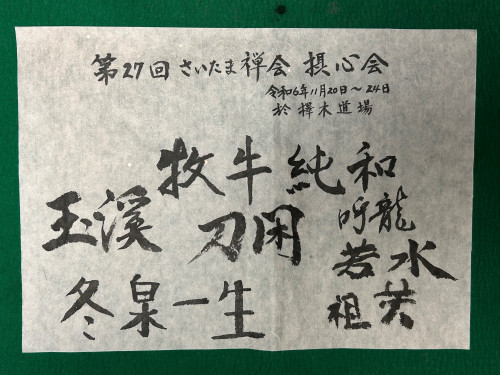 第27回 さいたま禅会 摂心会
令和6年11月20日～24日
於 擇木道場
牧牛 純和
玉溪 刀閑 吽龍
若水
冬泉 一生 祖英